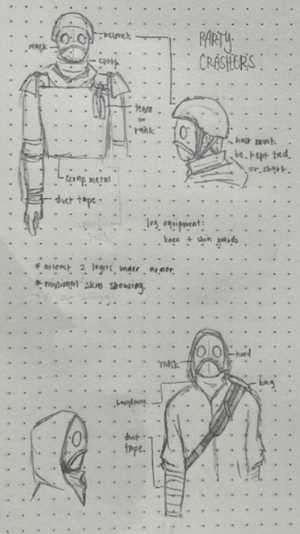 PARTY
CRASHERS
helmet
mask
cloth
team
or
rank
hair must
be kept tied
or short.
scrap metal
duct tape
leg equipment:
knee + shin guards
* atleast 2 layers under armor
* minimal skin showing
mask
hood
bag
bandana
duct
tape